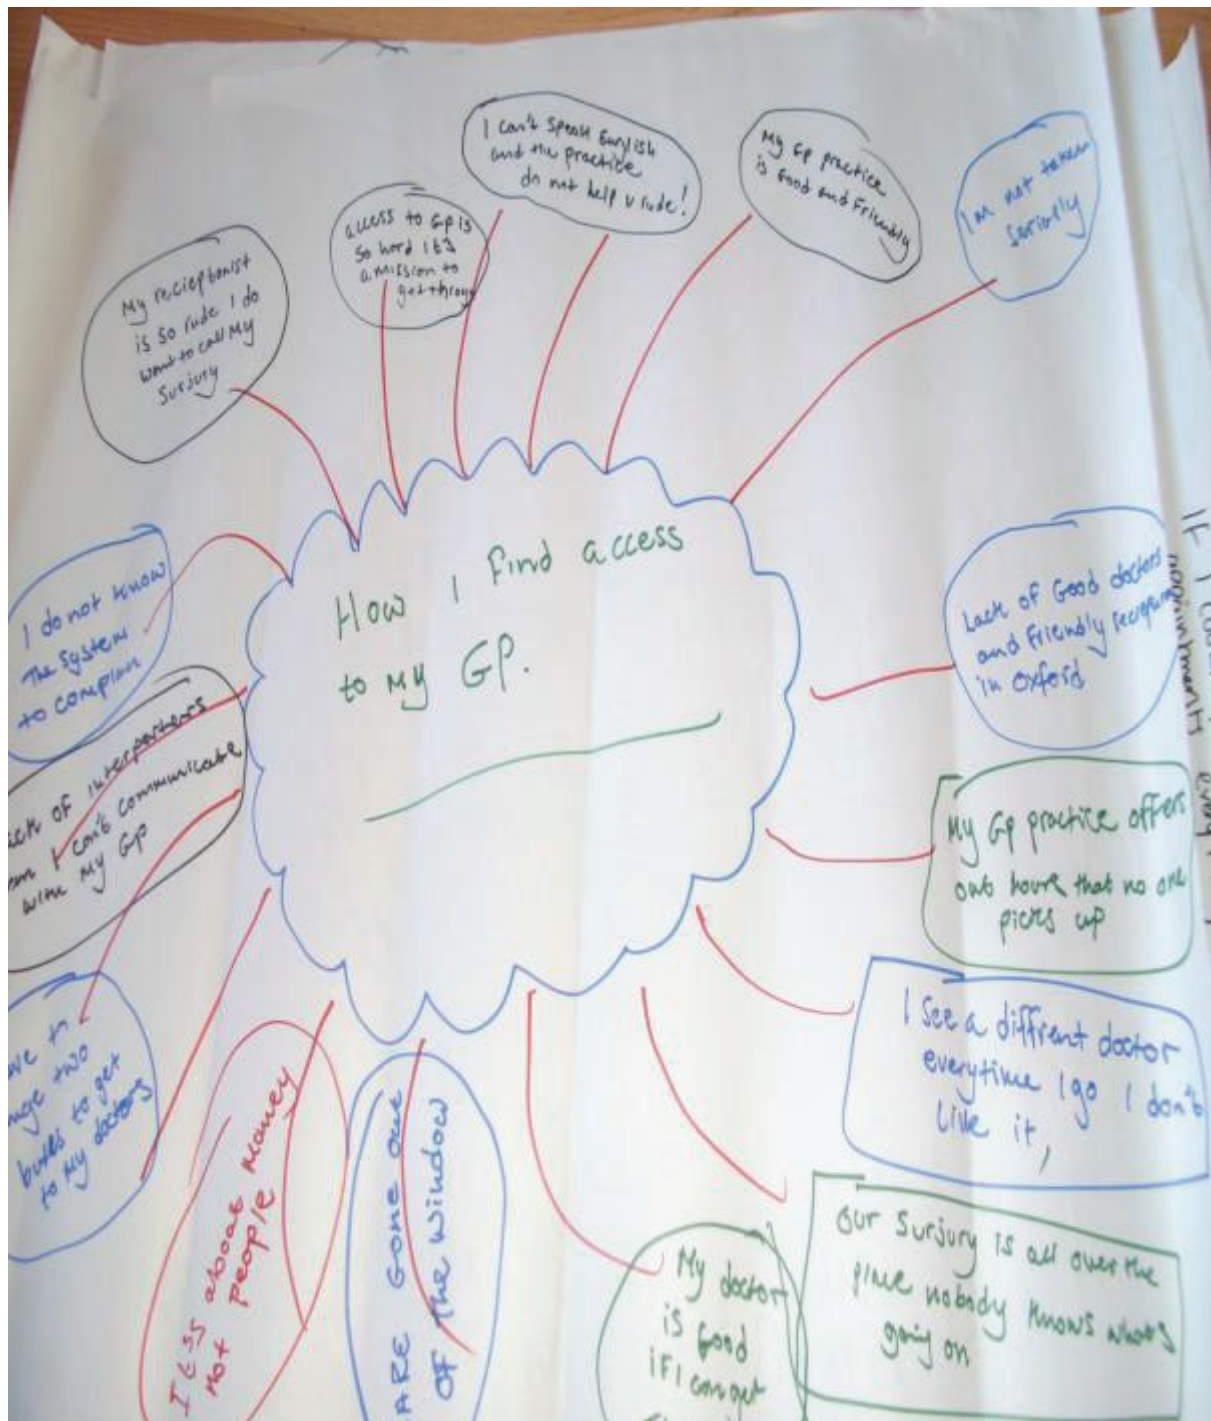 How I find access
to my GP.
My recieptionist
is so rude I do
want to call My
Surjury
access to GP is
so hard it's
a mission to
get throug
I can't speak English
and the practice
do not help u rude!
My GP practice
is Good and Friendly
I'm not taken
seriously
Lack of Good doctors
and Friendly
in Oxford
My GP practice offers
out hours that no one
picks up
I see a diffrent doctor
everytime I go I don't
like it,
Our Surjury is all over the
place nobody knows whats
going on
My doctor
is Good
if I can get
ARE GONE OUT
OF The WINDOW
It's about money
not people
two
buses to get
to My doctors
of interperters
I can't communicate
with My GP
I do not know
The System
to complain
IF I
appointments